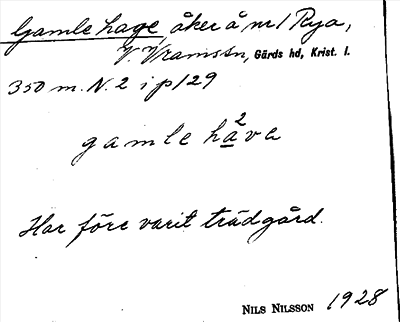 Gamle hage, åker å nr 1 Rya,
V. Vramsn, Gärds hd, Krist. l.
350 m. N. 2 i p/29
gamle ha²va
Har förr varit trädgård.
NILS NILSSON 1928